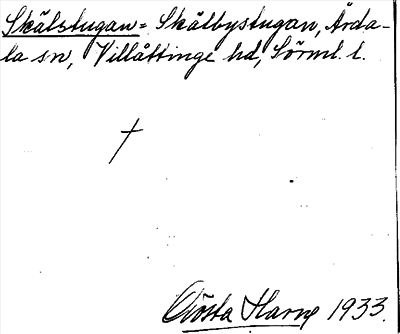 Skälstugan = Skälbystugan, Årda-
la sn, Villåttinge hd, Sörml. l.
†
Gösta Harne 1933.